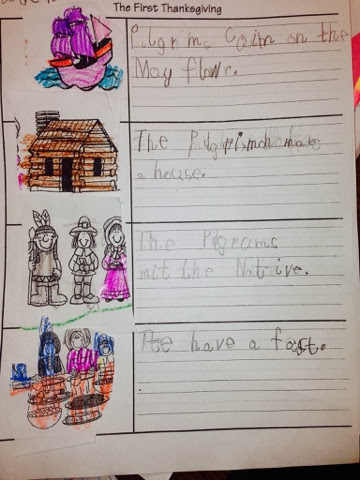 The First Thanksgiving
Pilgrims Caim on the
May flowr.
The make
a house.
The Pilgrams
mit the Native.
have a fast.